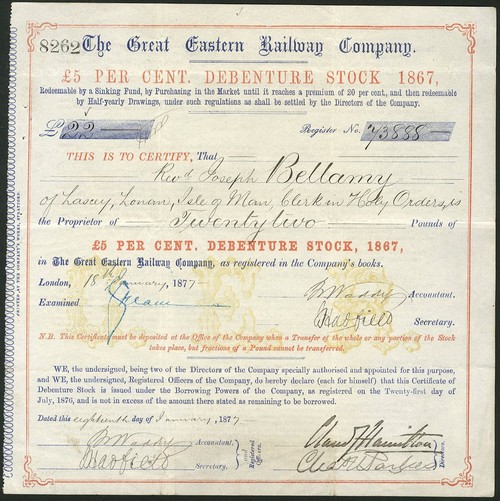 8262 The Great Eastern Railway Company.
£5 PER CENT. DEBENTURE STOCK 1867,
Redeemable by a Sinking Fund, by Purchasing in the Market until it reaches a premium of 20 per cent, and then redeemable
by Half-yearly Drawings, under such regulations as shall be settled by the Directors of the Company.
£22 Register No. 73888
THIS IS TO CERTIFY, That
Revd. Joseph Bellamy
of Laxey, Lonan, Isle of Man, Clerk in Holy Orders, is
the Proprietor of Twentytwo Pounds of
£5 PER CENT. DEBENTURE STOCK, 1867,
in The Great Eastern Railway Company, as registered in the Company's books.
London, 18th January, 1877
Accountant.
Examined
Secretary.
N.B. This Certificate must be deposited at the Office of the Company when a Transfer of the whole or any portion of the Stock
takes place, but fractions of a Pound cannot be transferred.
WE, the undersigned, being two of the Directors of the Company specially authorised and appointed for this purpose,
and WE, the undersigned, Registered Officers of the Company, do hereby declare (each for himself) that this Certificate of
Debenture Stock is issued under the Borrowing Powers of the Company, as registered on the Twenty-first day of
July, 1876, and is not in excess of the amount there stated as remaining to be borrowed.
Dated this eighteenth day of January, 1877
Accountant.
Secretary.
and Registered Officers.
Claud J Hamilton
Directors.
PRINTED AT THE COMPANY'S WORKS, STRATFORD.